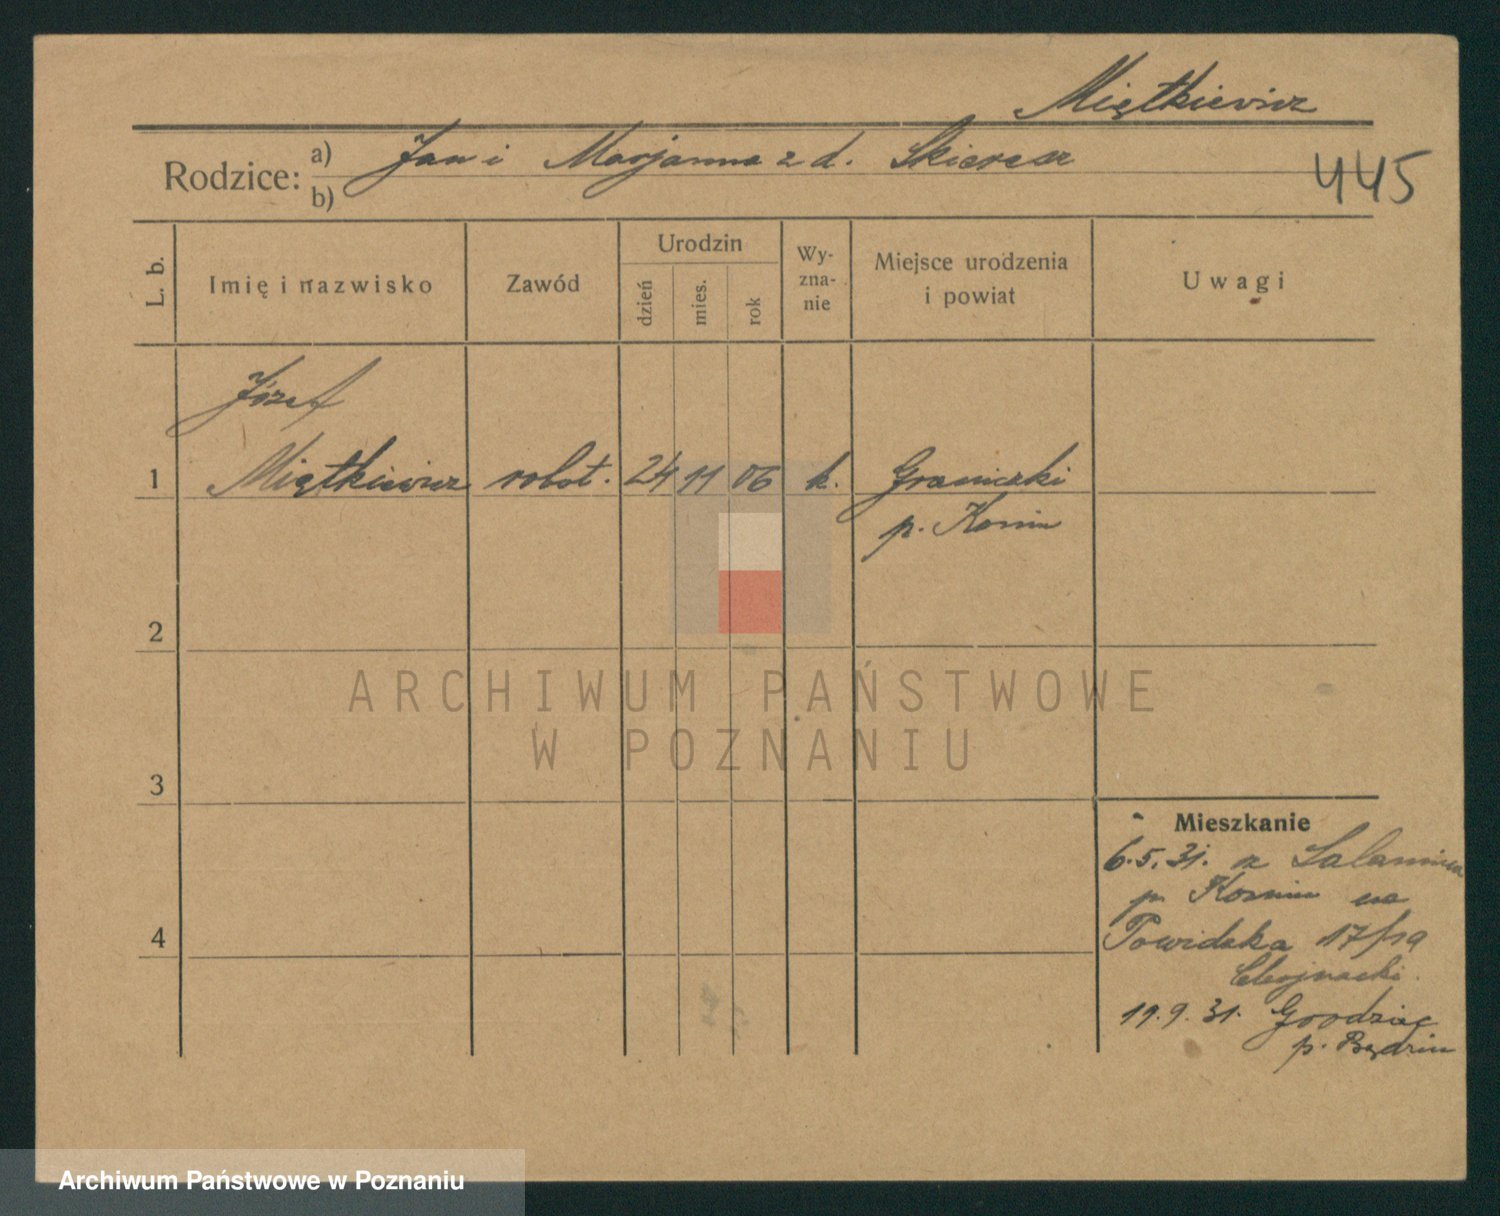 Miętkiewicz
Rodzice: a) Jan i Marjanna z d. Skieresz
b)
445
L. b.
Imię i nazwisko
Zawód
Urodzin
dzień
mies.
rok
Wy-
zna-
nie
Miejsce urodzenia
i powiat
Uwagi
Józef
1 Miętkiewicz robot. 24 11 06 k. Graniczki
p. Konin
2
3
4
ARCHIWUM PAŃSTWOWE
W POZNANIU
Mieszkanie
6.5.31. z
p. Konin na
Powidzka 17/19
Chojnacki.
19.9.31. Grodziec
p. Będzin
Archiwum Państwowe w Poznaniu